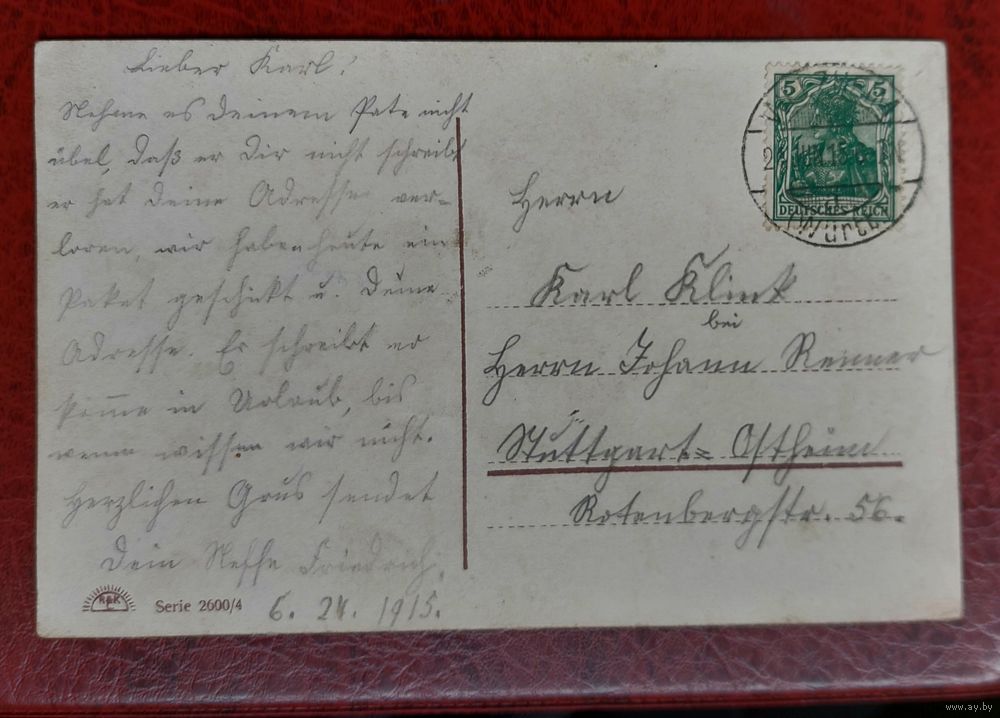 Lieber Karl!
Nehme es deinem Pate nicht
übel, daß er Dir nicht schreibt
er hat deine Adresse ver=
loren, wir haben heute ein
Paket geschickt u. Deine
Adresse. Er schreibt er
komme in Urlaub, bis
wenn wissen wir nicht.
Herzlichen Grus sendet
Dein Neffe Friedrich.
6. 24. 1915.
R&K
Serie 2600/4
5 5
DEUTSCHES REICH
JUN. 15
(Württ
Herrn
Karl Klink
bei
Herrn Johann Renner
Stuttgart= Ostheim
Rotenbergstr. 56.
www.ay.by